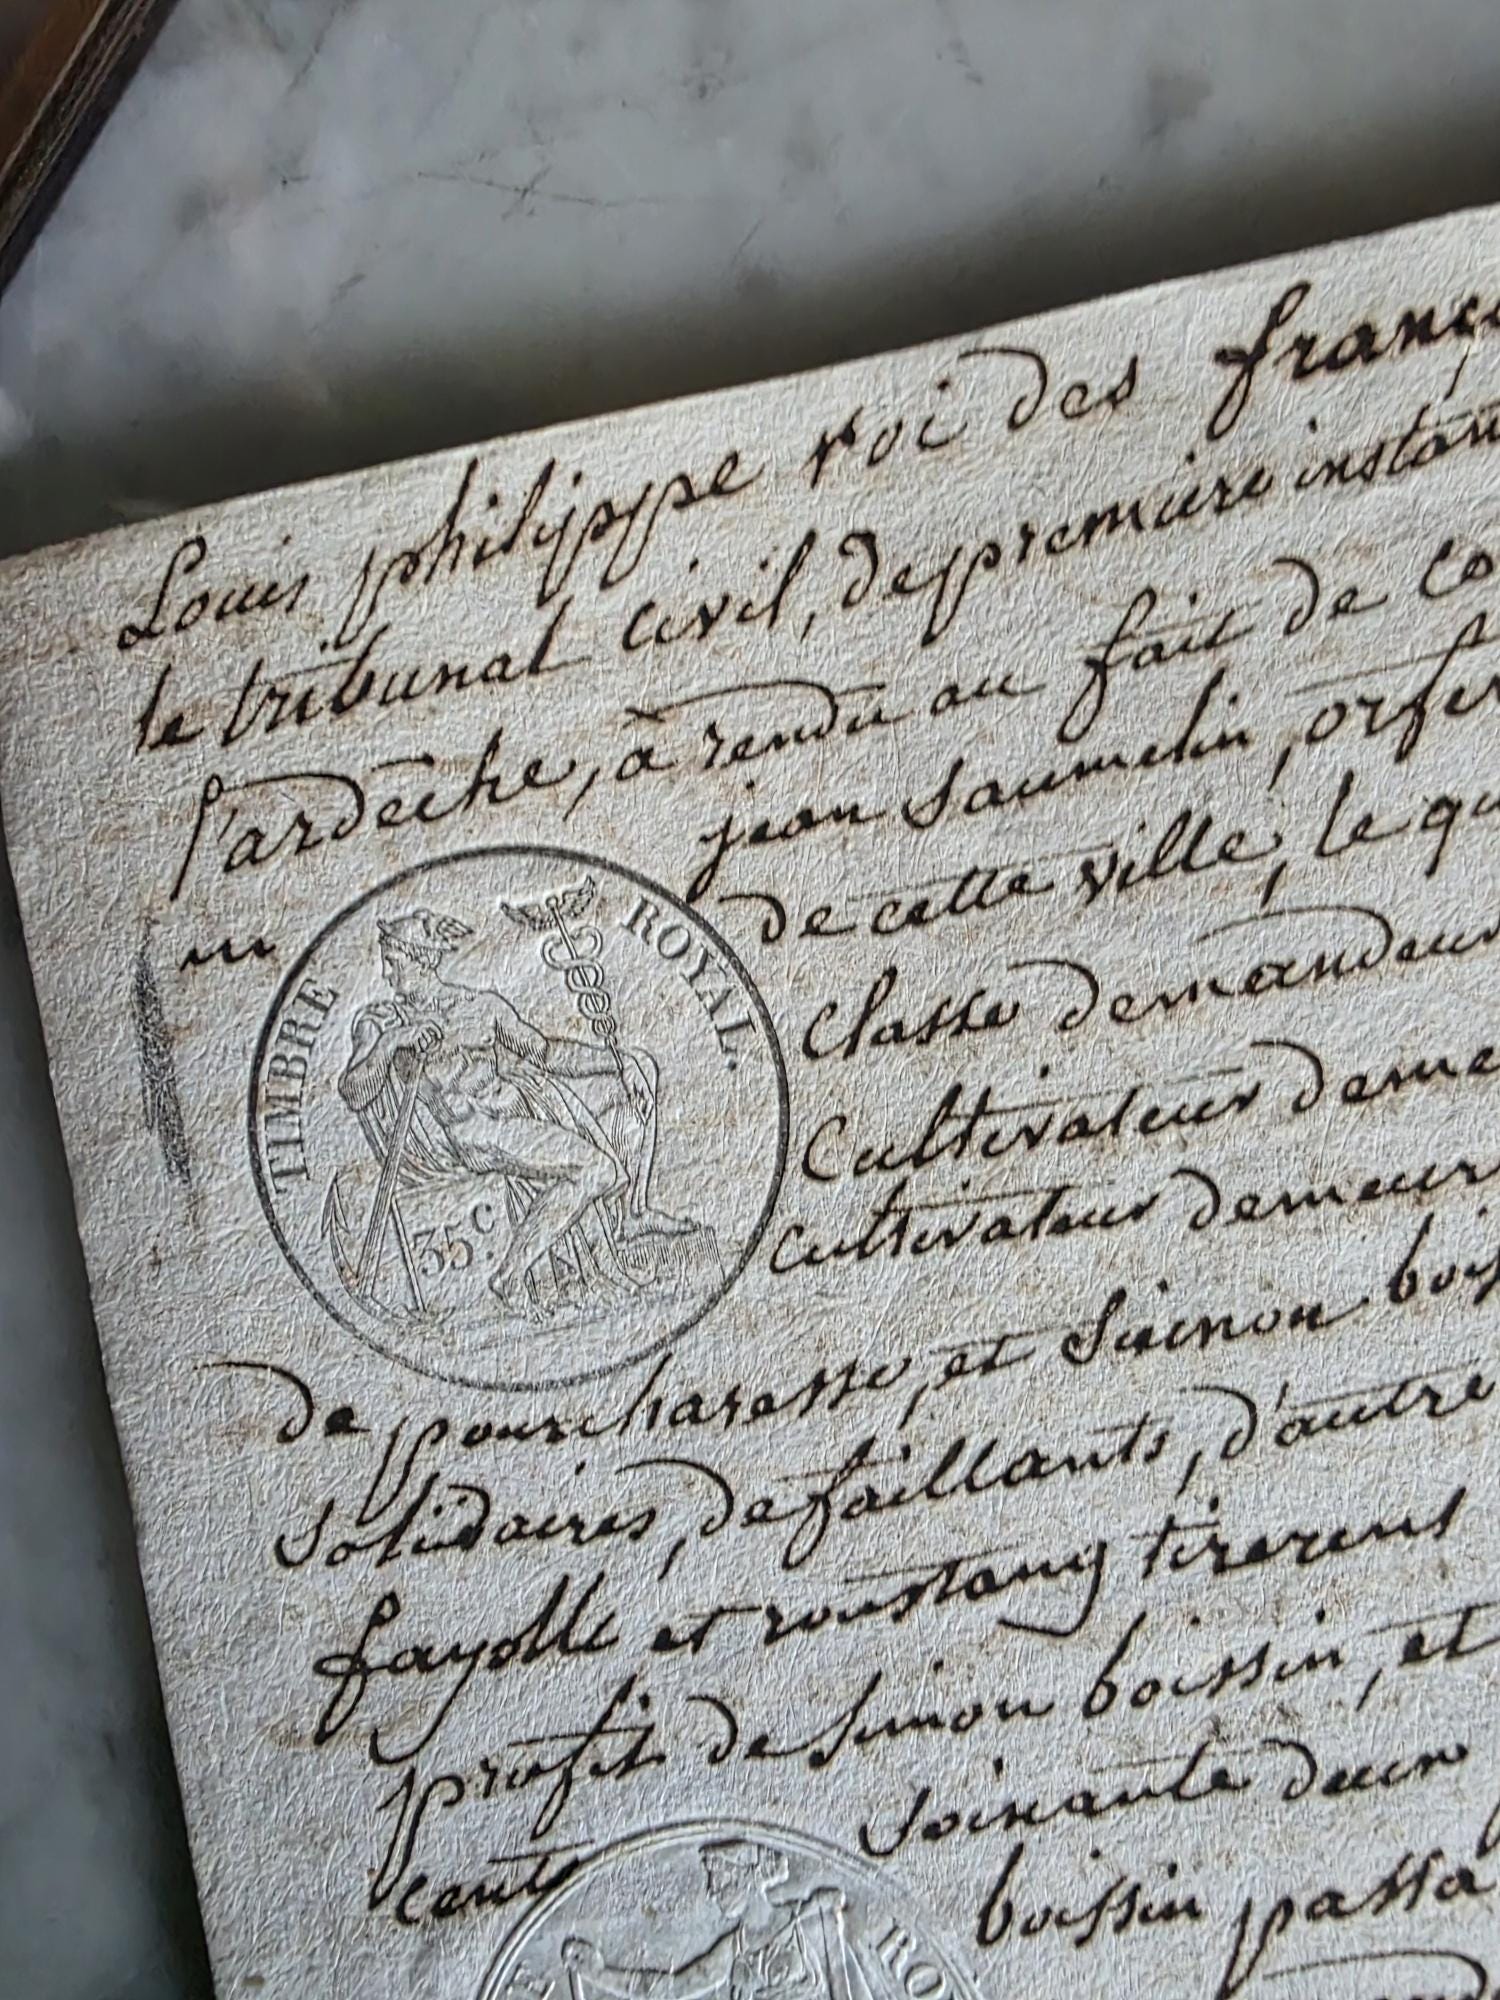 Louis philippe roi des franç
le tribunal civil, de premiere instan
l'ardeche, à rendu au fait de co
jean Saumelin, orfer
un
de cette ville, le qu
TIMBRE ROYAL.
35 c.
Classe demandeur
Cultivateur deme
Cultivateur demeur
de pourcharesse, et Simon bois
Solidaires, defaillants, d'autre
fayolle et roustang tirerent
profit de Simon boissin, et
cents soixante deux
boissin passa
E RO